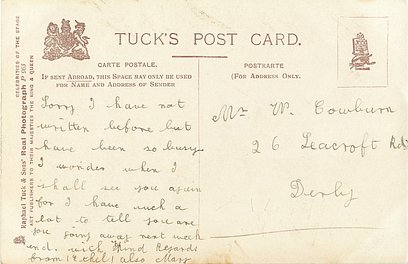 TUCK'S POST CARD.
CARTE POSTALE.
POSTKARTE
IF SENT ABROAD, THIS SPACE MAY ONLY BE USED
FOR NAME AND ADDRESS OF SENDER
(FOR ADDRESS ONLY.
CELEBRITIES OF THE STAGE
Raphael Tuck & Sons' Real Photograph P 105
ART PUBLISHERS TO THEIR MAJESTIES THE KING & QUEEN
Sorry I have not
written before but
have been so busy
I wonder when I
shall see you again
for I have such a
lot to tell you are
you going away next week
end. with kind Regards
from Ethel also Mary
Mr W. Cowburn
26 Leacroft Rd
Derby